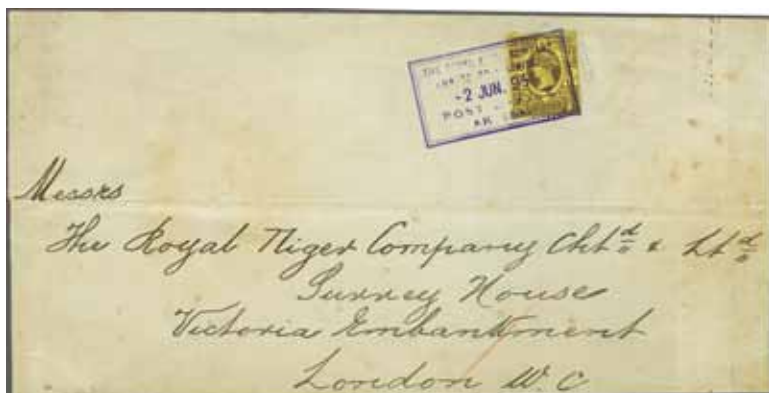 -2 JUN. 
POST
Messrs
The Royal Niger Company Chtd & Ltd
Surrey House
Victoria Embankment
London W.C